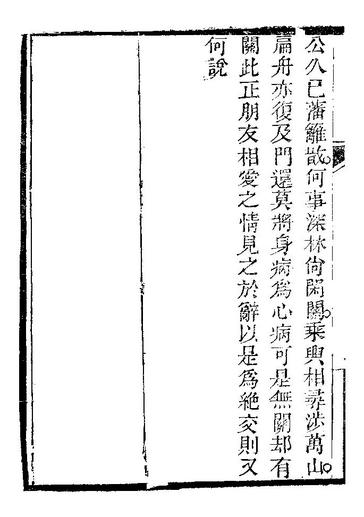 公久已藩籬散何事深林尙閉關乘輿相尋涉萬山
扁舟亦復及門還莫將身病爲心病可是無關却有
關此正朋友相愛之情見之於辭以是爲絶交則又
何說